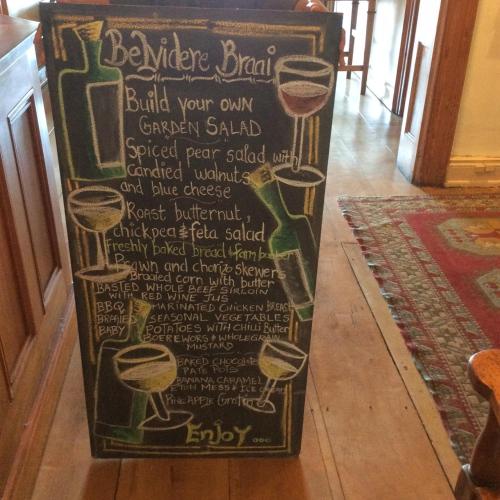 Belvidere Braai
Build your own
GARDEN SALAD
Spiced pear salad with
candied walnuts
and blue cheese
Roast butternut,
chickpea & feta salad
Freshly baked bread & farm butter
Prawn and chorizo skewers
Braaied corn with butter
BASTED WHOLE BEEF SIRLOIN
WITH RED WINE JUS
BBQ MARINATED CHICKEN BREAST
BRAAIED SEASONAL VEGETABLES
BABY POTATOES WITH CHILLI Butter
BOEREWORS & WHOLEGRAIN
MUSTARD
BAKED CHOCOLATE
PATE POTS
BANANA CARAMEL
ETON MESS & ICE
PINEAPPLE
Enjoy...